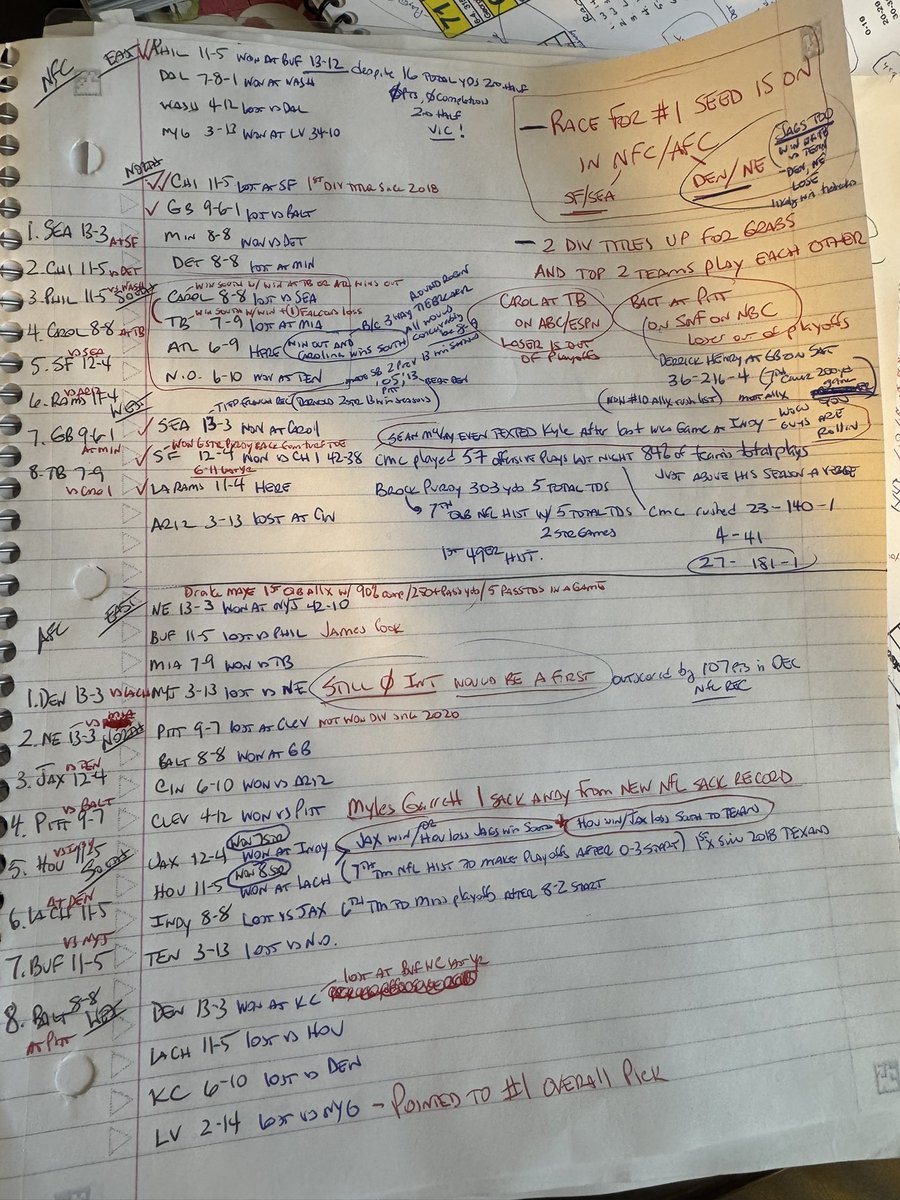 NFC
EAST ✓ PHIL 11-5 WON AT BUF 13-12 despite 16 TOTAL YDS 2nd Half
0 PTS, 0 completion
2nd Half
VIC!
DAL 7-8-1 WON AT WASH
WASH 4-12 LOST vs DAL
NYG 3-13 WON AT LV 34-10
- RACE FOR #1 SEED IS ON
IN NFC/AFC
SF/SEA
DEN/NE
JAGS TOO
WIN
vs TENN
DEN, NE
LOSE
NORTH
✓✓ CHI 11-5 LOST AT SF 1ST DIV TITLE Since 2018
✓ GB 9-6-1 LOST vs BALT
MIN 8-8 WON vs DET
DET 8-8 LOST AT MIN
- 2 DIV TITLES UP FOR GRABS
AND TOP 2 TEAMS PLAY EACH OTHER
CAROL AT TB
ON ABC/ESPN
LOSER IS OUT
OF PLAYOFFS
BALT AT PITT
ON SNF ON NBC
LOSER OUT OF PLAYOFFS
1. SEA 13-3 AT SF
2. CHI 11-5 vs DET
3. PHIL 11-5 vs WASH
4. CAROL 8-8 AT TB
5. SF 12-4 vs SEA
6. RAMS 11-4 vs ARIZ
7. GB 9-6-1 AT MIN
8. TB 7-9 vs CAROL
SOUTH
WIN SOUTH W/ WIN AT TB OR ATL WINS OUT
CAROL 8-8 LOST vs SEA
WIN SOUTH W/ WIN + (1) FALCONS LOSS
TB 7-9 LOST AT MIA
ATL 6-9 HERE
WIN OUT AND
CAROLINA WINS SOUTH
B/C 3 WAY TIEBREAKER
ROUND ROBIN
All would
be 8-9
N.O. 6-10 WON AT TEN
made SB 2 Prev 13 win seasons
'05, '13
PITT
BEAT DEN
WEST
TIED FRANCH REC (DARNOLD 2 STR 13 win seasons)
✓ SEA 13-3 WON AT CAROL
WON 6 STR PURDY BACK from turf TOE
✓ SF 12-4 WON vs CHI 42-38
6-11 last yr
✓ LA RAMS 11-4 HERE
ARIZ 3-13 LOST AT CIN
DERRICK HENRY AT GB ON SAT
36-216-4
(7th Career 200 yd game
(NOW #10 ALLX rush list)
most allx
SEAN McVAY EVEN TEXTED Kyle After last wks Game at Indy - WOW YOU
GUYS ARE
ROLLIN
CMC played 57 offensive plays last NIGHT 84% of teams total plays
JUST ABOVE HIS SEASON AVERAGE
BROCK PURDY 303 yds 5 TOTAL TDS
7TH QB NFL HIST W/ 5 TOTAL TDS
2 STR GAMES
1st 49ER HIST.
CMC rushed 23-140-1
4-41
27-181-1
AFC
EAST
Drake MAYE 1st QB ALLX W/ 90% comp/250+ Pass yds/5 PASS TDS IN A GAME
NE 13-3 WON AT NYJ 42-10
BUF 11-5 LOST vs PHIL James Cook
MIA 7-9 WON vs TB
NYJ 3-13 LOST vs NE STILL 0 INT WOULD BE A FIRST outscored by 107 pts in DEC
NFL REC
1. DEN 13-3 vs LACH
2. NE 13-3 vs MIA
3. JAX 12-4 vs TEN
4. PITT 9-7 vs BALT
5. HOU 11-5 vs INDY
6. LACH 11-5 AT DEN
7. BUF 11-5 vs NYJ
8. BALT 8-8 AT PITT
NORTH
PITT 9-7 LOST AT CLEV NOT WON DIV since 2020
BALT 8-8 WON AT GB
CIN 6-10 WON vs ARIZ
CLEV 4-12 WON vs PITT Myles Garrett 1 SACK AWAY FROM NEW NFL SACK RECORD
SOUTH
JAX 12-4 WON AT INDY
WON 7 STR
JAX WIN/OR HOU LOSS JAGS WIN SOUTH
HOU WIN/JAX LOSS SOUTH TO TEXANS
HOU 11-5 WON AT LACH
WON 8 STR
(7TH Tm NFL HIST TO MAKE PLAYOFFS AFTER 0-3 START) 1st x since 2018 TEXANS
INDY 8-8 LOST vs JAX 6TH Tm TO miss playoffs AFTER 8-2 START
TEN 3-13 LOST vs N.O.
WEST
LOST AT BUF WC last yr
DEN 13-3 WON AT KC
LACH 11-5 LOST vs HOU
KC 6-10 LOST vs DEN
LV 2-14 LOST vs NYG - POINTED TO #1 OVERALL PICK